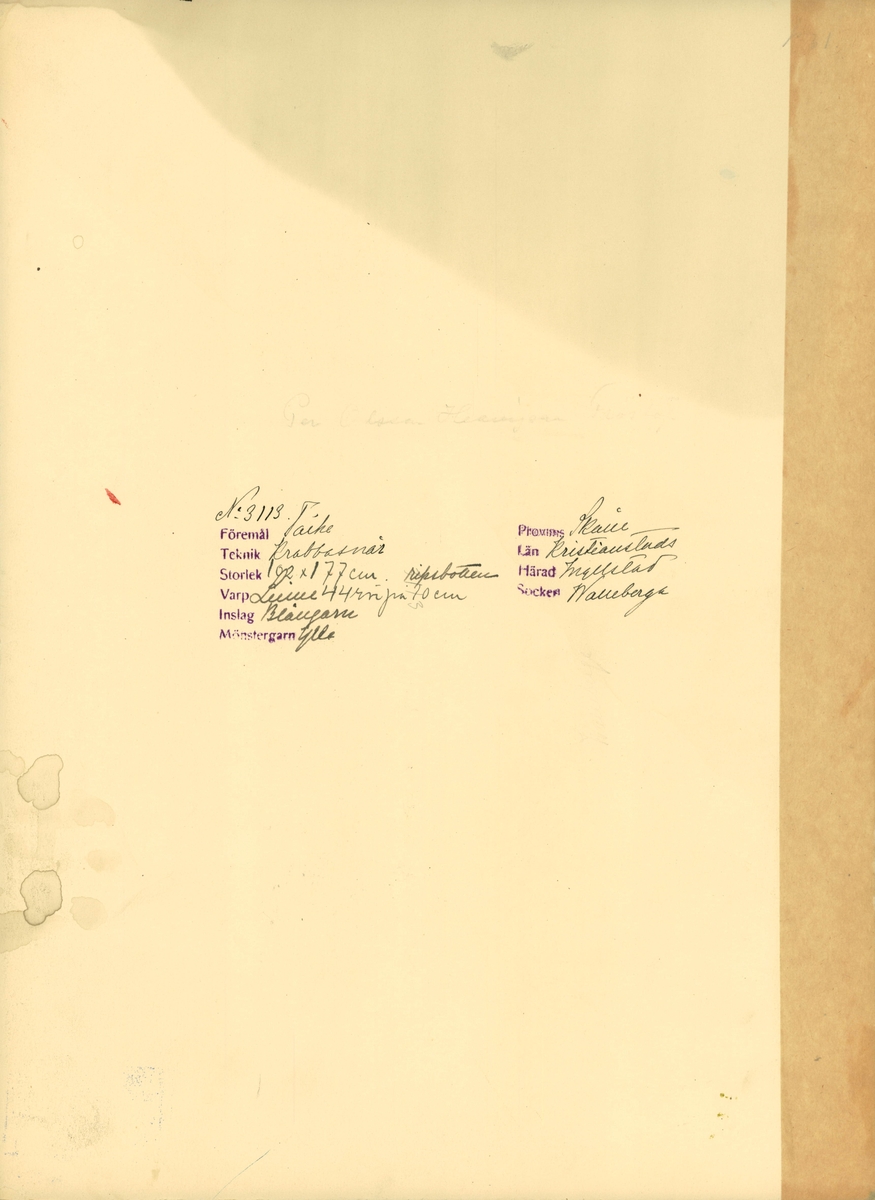 Per Olson
No 3113.
Föremål Täcke
Teknik Krabbasnår
Storlek 192 x 177 cm. ripsbotten
Varp Linne 44 rör på 10 cm
Inslag Blångarn
Mönstergarn Ylle
Provins Skåne
Län Kristianstads
Härad Ingelstad
Socken Walleberga